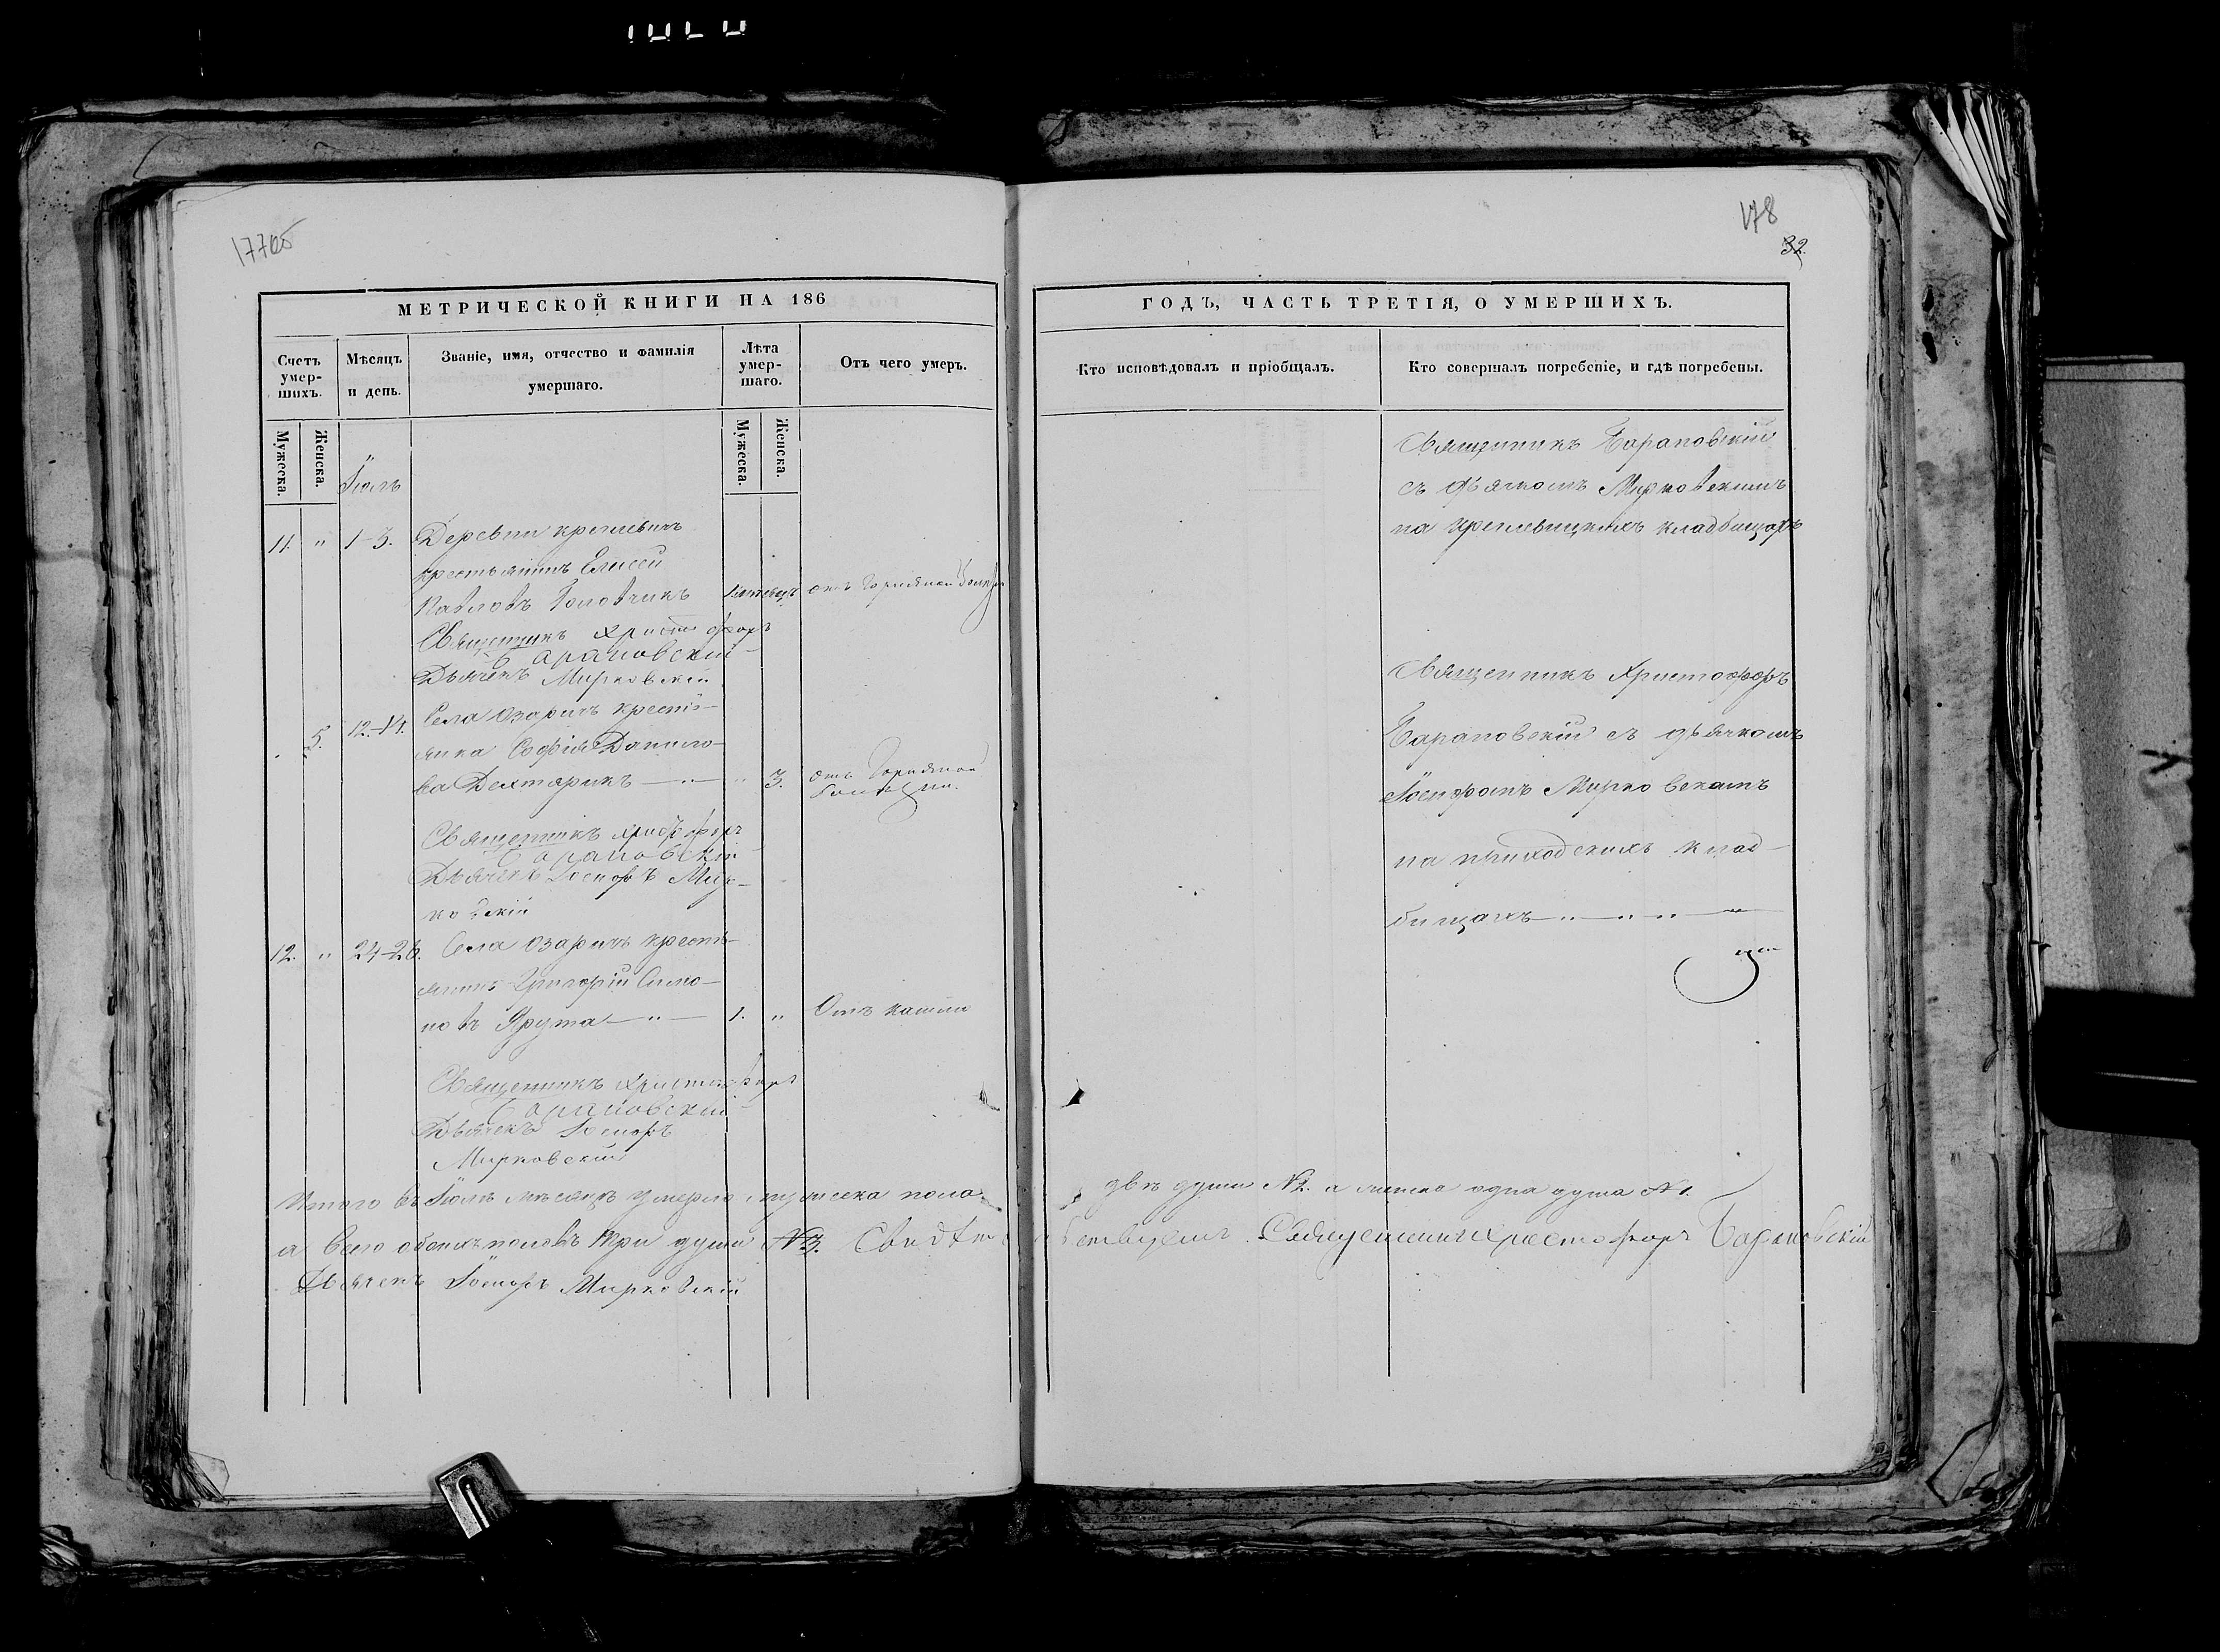 178
32.
МЕТРИЧЕСКОЙ КНИГИ НА 186
Счетъ умер-шихъ.
Мѣсяцъ и день.
Званіе, имя, отчество и фамилія умершаго.
Лѣта умер-шаго.
Отъ чего умеръ.
Мужеска.
Женска.
Мужеска.
Женска.
Іюль
11. " 1-3. Деревни
крестьянинъ Елисей
Павловъ Головчикъ
Священникъ Христофоръ
Барановскій
Дьячекъ Мирковскій
5. 12-14. Села Озаричъ кресть-
янка Софія Данило-
ва Дехтярикъ — " — " 3. отъ
Священникъ Христофоръ
Барановскій
Дьячекъ Іосифъ Мир-
ковскій
12. " 24-26. Села Озаричъ кресть-
янинъ Григорій Симо-
новъ Ярута — " — 1. " Отъ кашлю
Священникъ Христофоръ
Барановскій
Дьячекъ Іосифъ
Мирковскій
Итого въ Іюлѣ мѣсяцѣ умерло мужеска пола
а всего обоихъ половъ три души №3.
Дьячекъ Іосифъ Мирковскій
ГОДЪ, ЧАСТЬ ТРЕТІЯ, О УМЕРШИХЪ.
Кто исповѣдовалъ и пріобщалъ.
Кто совершалъ погребеніе, и гдѣ погребены.
Священникъ Барановскій
съ дьячкомъ Мирковскимъ
на кладбищахъ
Священникъ Христофоръ
Барановскій съ дьячкомъ
Іосифомъ Мирковскимъ
на приходскихъ клад-
бищахъ — " — " " —
двѣ души №2. а женска одна душа №1.
Священникъ Христофоръ Барановскій